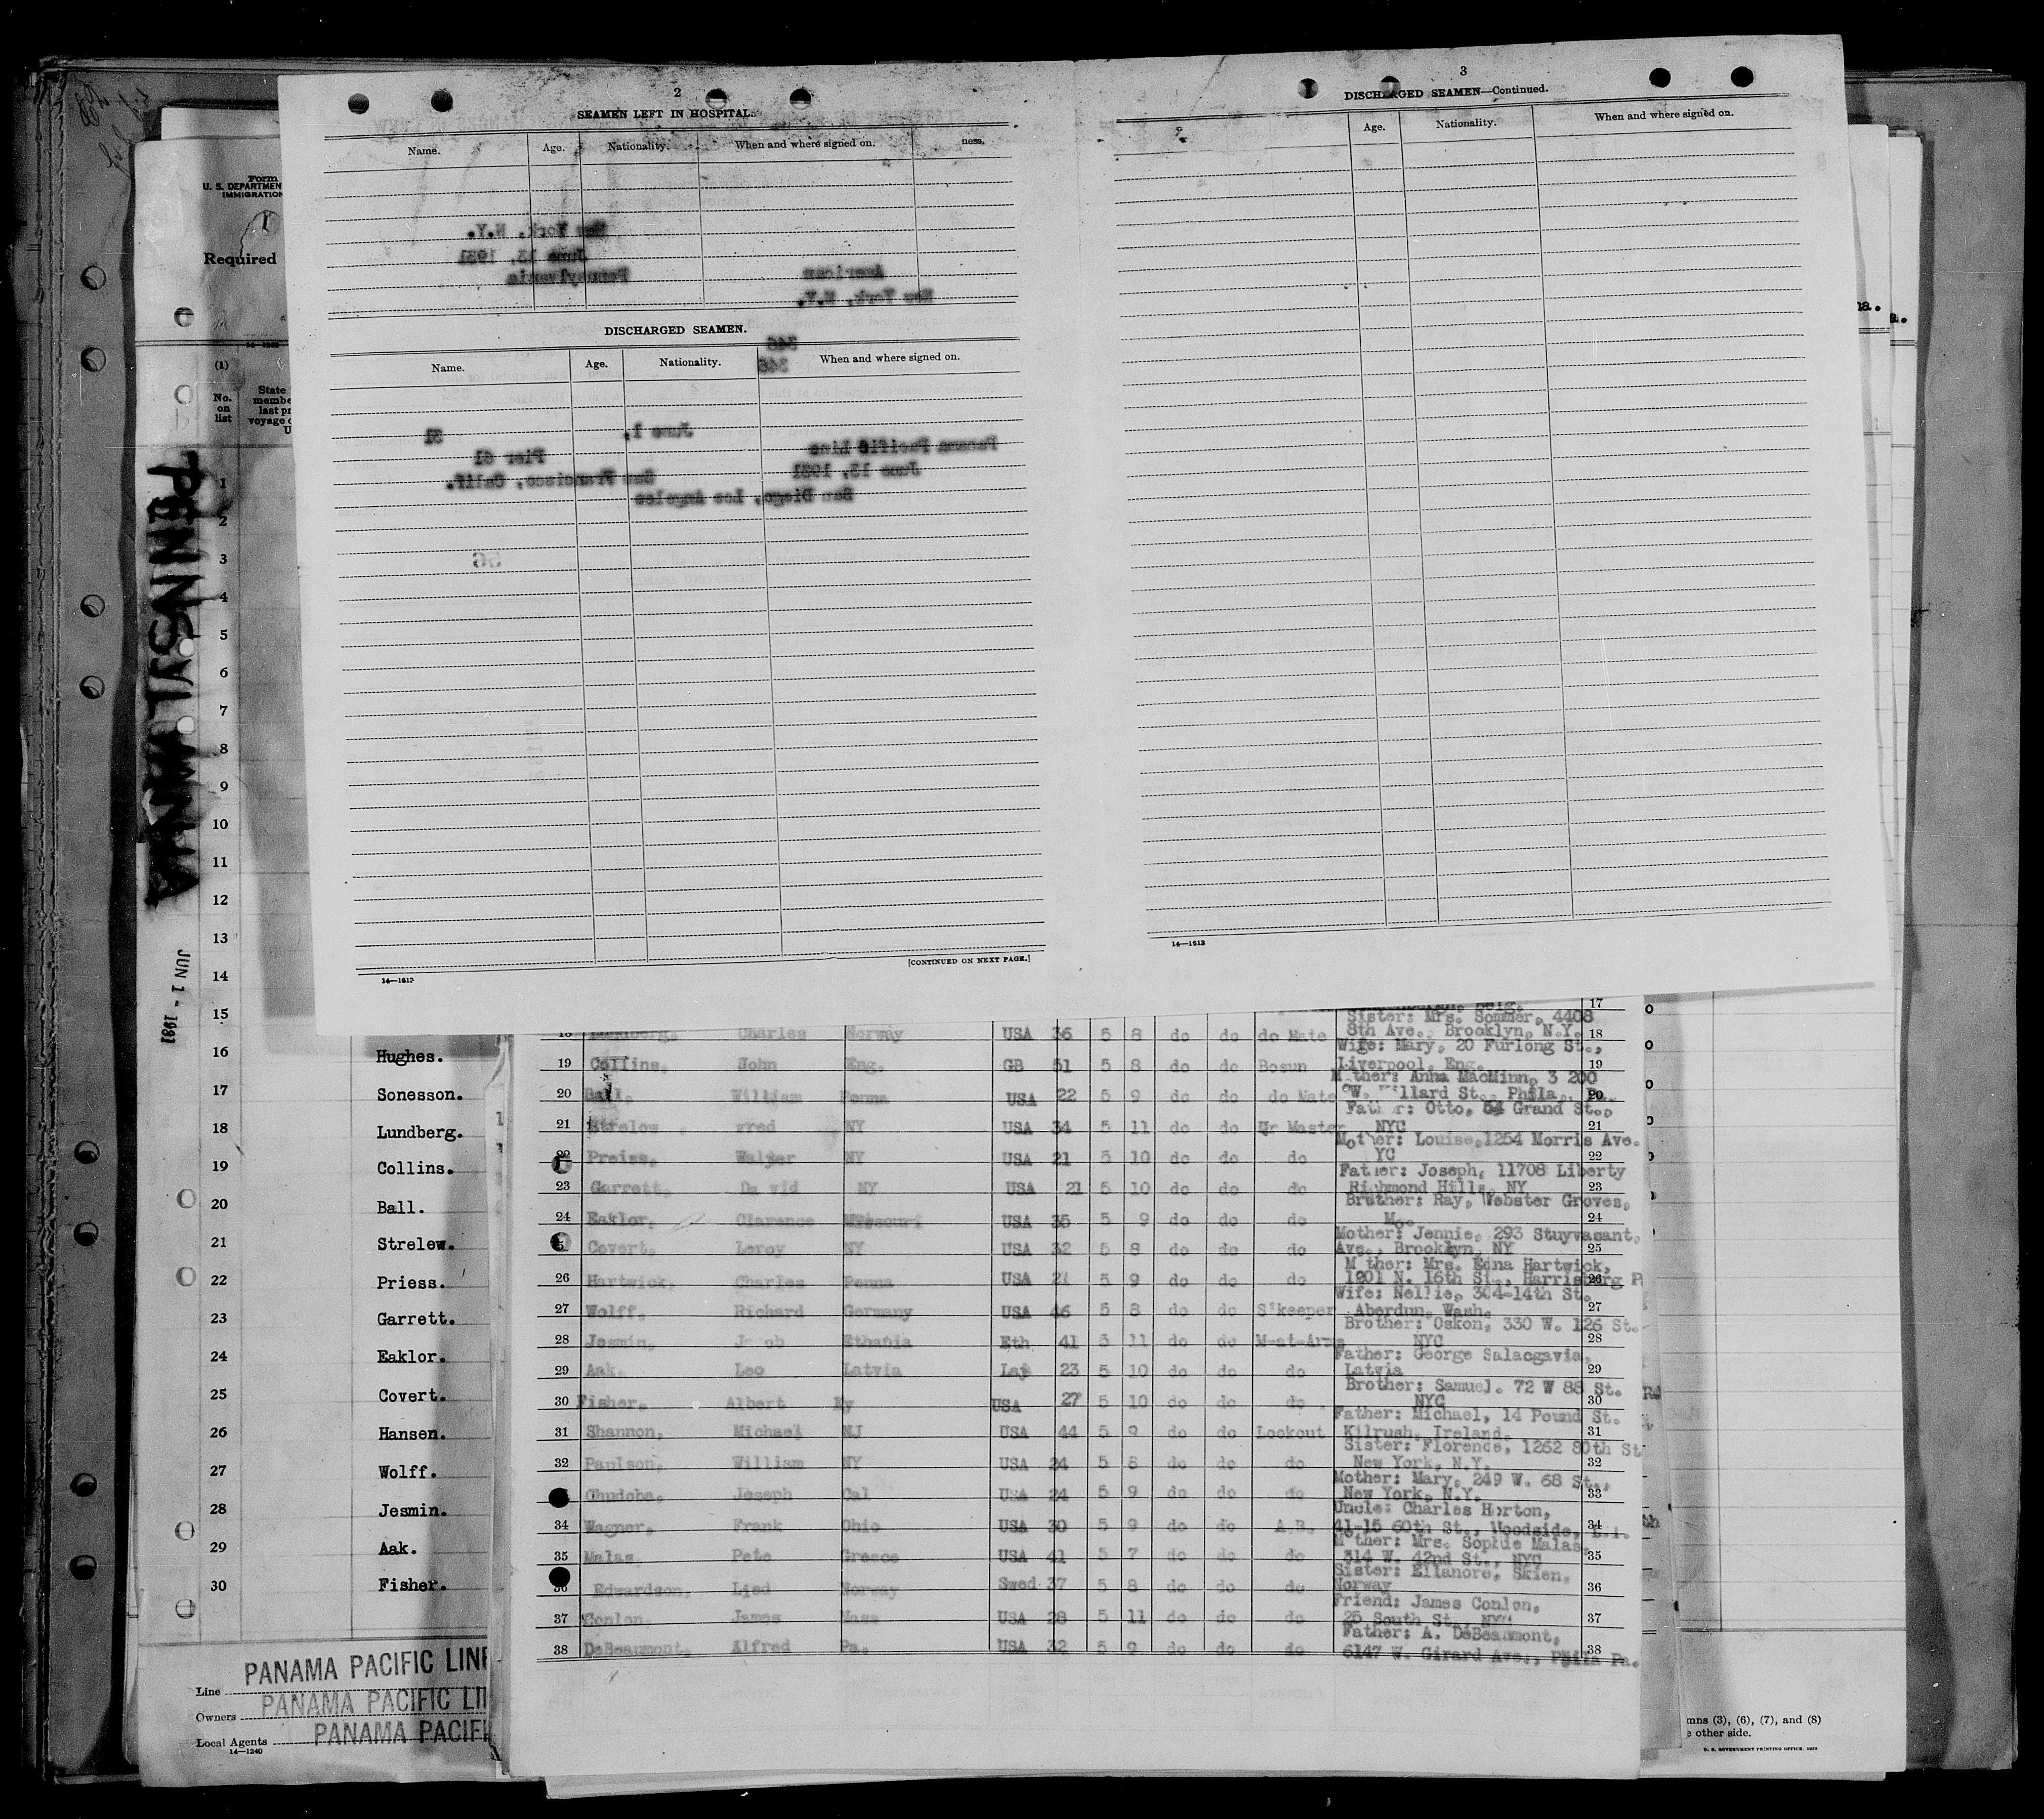 2
SEAMEN LEFT IN HOSPITAL.
Name. Age. Nationality. When and where signed on. ness.
New York, N.Y.
June 13, 1931
Pennsylvania
American
New York, N.Y.
DISCHARGED SEAMEN.
346
346
Name. Age. Nationality. When and where signed on.
June 1, 31
Panama Pacific Line
Pier 61
June 13, 1931
San Francisco, Calif.
San Diego, Los Angeles
56
[CONTINUED ON NEXT PAGE.]
14—1613
3
DISCHARGED SEAMEN—Continued.
Age. Nationality. When and where signed on.
14—1613
Form
U. S. DEPARTMEN
IMMIGRATION
Required
14—1240
(1)
No. on list
State
membe
last pr
voyage o
U
PENNSYLVANIA
JUN 1 - 1931
1
2
3
4
5
6
7
8
9
10
11
12
13
14
15
16 Hughes.
17 Sonesson.
18 Lundberg.
19 Collins.
20 Ball.
21 Strelew.
22 Priess.
23 Garrett.
24 Eaklor.
25 Covert.
26 Hansen.
27 Wolff.
28 Jesmin.
29 Aak.
30 Fisher.
Line PANAMA PACIFIC LINE
Owners PANAMA PACIFIC LIN
Local Agents PANAMA PACIFI
14—1240
17
Sister: Mrs. Sommer, 4408
Charles Norway USA 36 5 8 do do do Mate 8th Ave., Brooklyn, N.Y. 18
Wife: Mary, 20 Furlong St.,
19 Collins, John Eng. GB 51 5 8 do do Bosun Liverpool, Eng. 19
M ther: Anna MacMinn, 3 200
20 Ball, William Penna USA 22 5 9 do do do Mate W. llard St., Phila. Pa. 20
Father: Otto, 64 Grand St.,
21 Strelow red NY USA 34 5 11 do do Qr Master NYC 21
Mother: Louise, 1254 Morris Ave.
22 Preiss, Walter NY USA 21 5 10 do do do YC 22
Father: Joseph, 11708 Liberty
23 Garrett, David NY USA 21 5 10 do do do Richmond Hills, NY 23
Brother: Ray, Webster Groves,
24 Eaklor, Clarence Missouri USA 35 5 9 do do do Mo. 24
Mother: Jennie, 293 Stuyvasant,
Covert, Leroy NY USA 32 5 8 do do do Ave., Brooklyn, NY 25
M ther: Mrs. Edna Hartwick,
26 Hartwick, Charles Penna USA 21 5 9 do do do 1201 N. 16th St., Harrisburg P 26
Wife: Nellie, 304-14th St.
27 Wolff, Richard Germany USA 46 5 8 do do S'keeper Aberdun, Wash. 27
Brother: Oskon, 330 W. 126 St.
28 Jesmin, J cob Ethania Eth 41 5 11 do do M-at-Arms NYC 28
Father: George Salacgavia,
29 Aak, Leo Latvia Lat 23 5 10 do do do Latvia 29
Brother: Samuel. 72 W 88 St.
30 Fisher, Albert Ky USA 27 5 10 do do do NYC 30
Father: Michael, 14 Pound St.
31 Shannon, Michael NJ USA 44 5 9 do do Lookout Kilrush, Ireland. 31
Sister: Florence, 1262 80th St
32 Paulson, William NY USA 24 5 8 do do do New York, N.Y. 32
Mother: Mary, 249 W. 68 St.,
Chudoba, Joseph Cal USA 24 5 9 do do do New York, N.Y. 33
Uncle: Charles Horton,
34 Wagner, Frank Ohio USA 30 5 9 do do A.B. 41-15 60th St., Woodside, L.I. 34
M ther: Mrs. Sophie Malas,
35 Malas, Pete Greece USA 41 5 7 do do do 314 W. 42nd St., NYC 35
Sister: Ellanore, Skien,
36 Edwardson, Lied Norway Swed 37 5 8 do do do Norway 36
Friend: James Conlon,
37 Conlon, James Mass USA 28 5 11 do do do 25 South St., NYC 37
Father: A. DeBeaumont,
38 DeBeaumont, Alfred Pa. USA 32 5 9 do do do 6147 W. Girard Ave., Phila Pa. 38
mns (3), (6), (7), and (8)
e other side.
U. S. GOVERNMENT PRINTING OFFICE